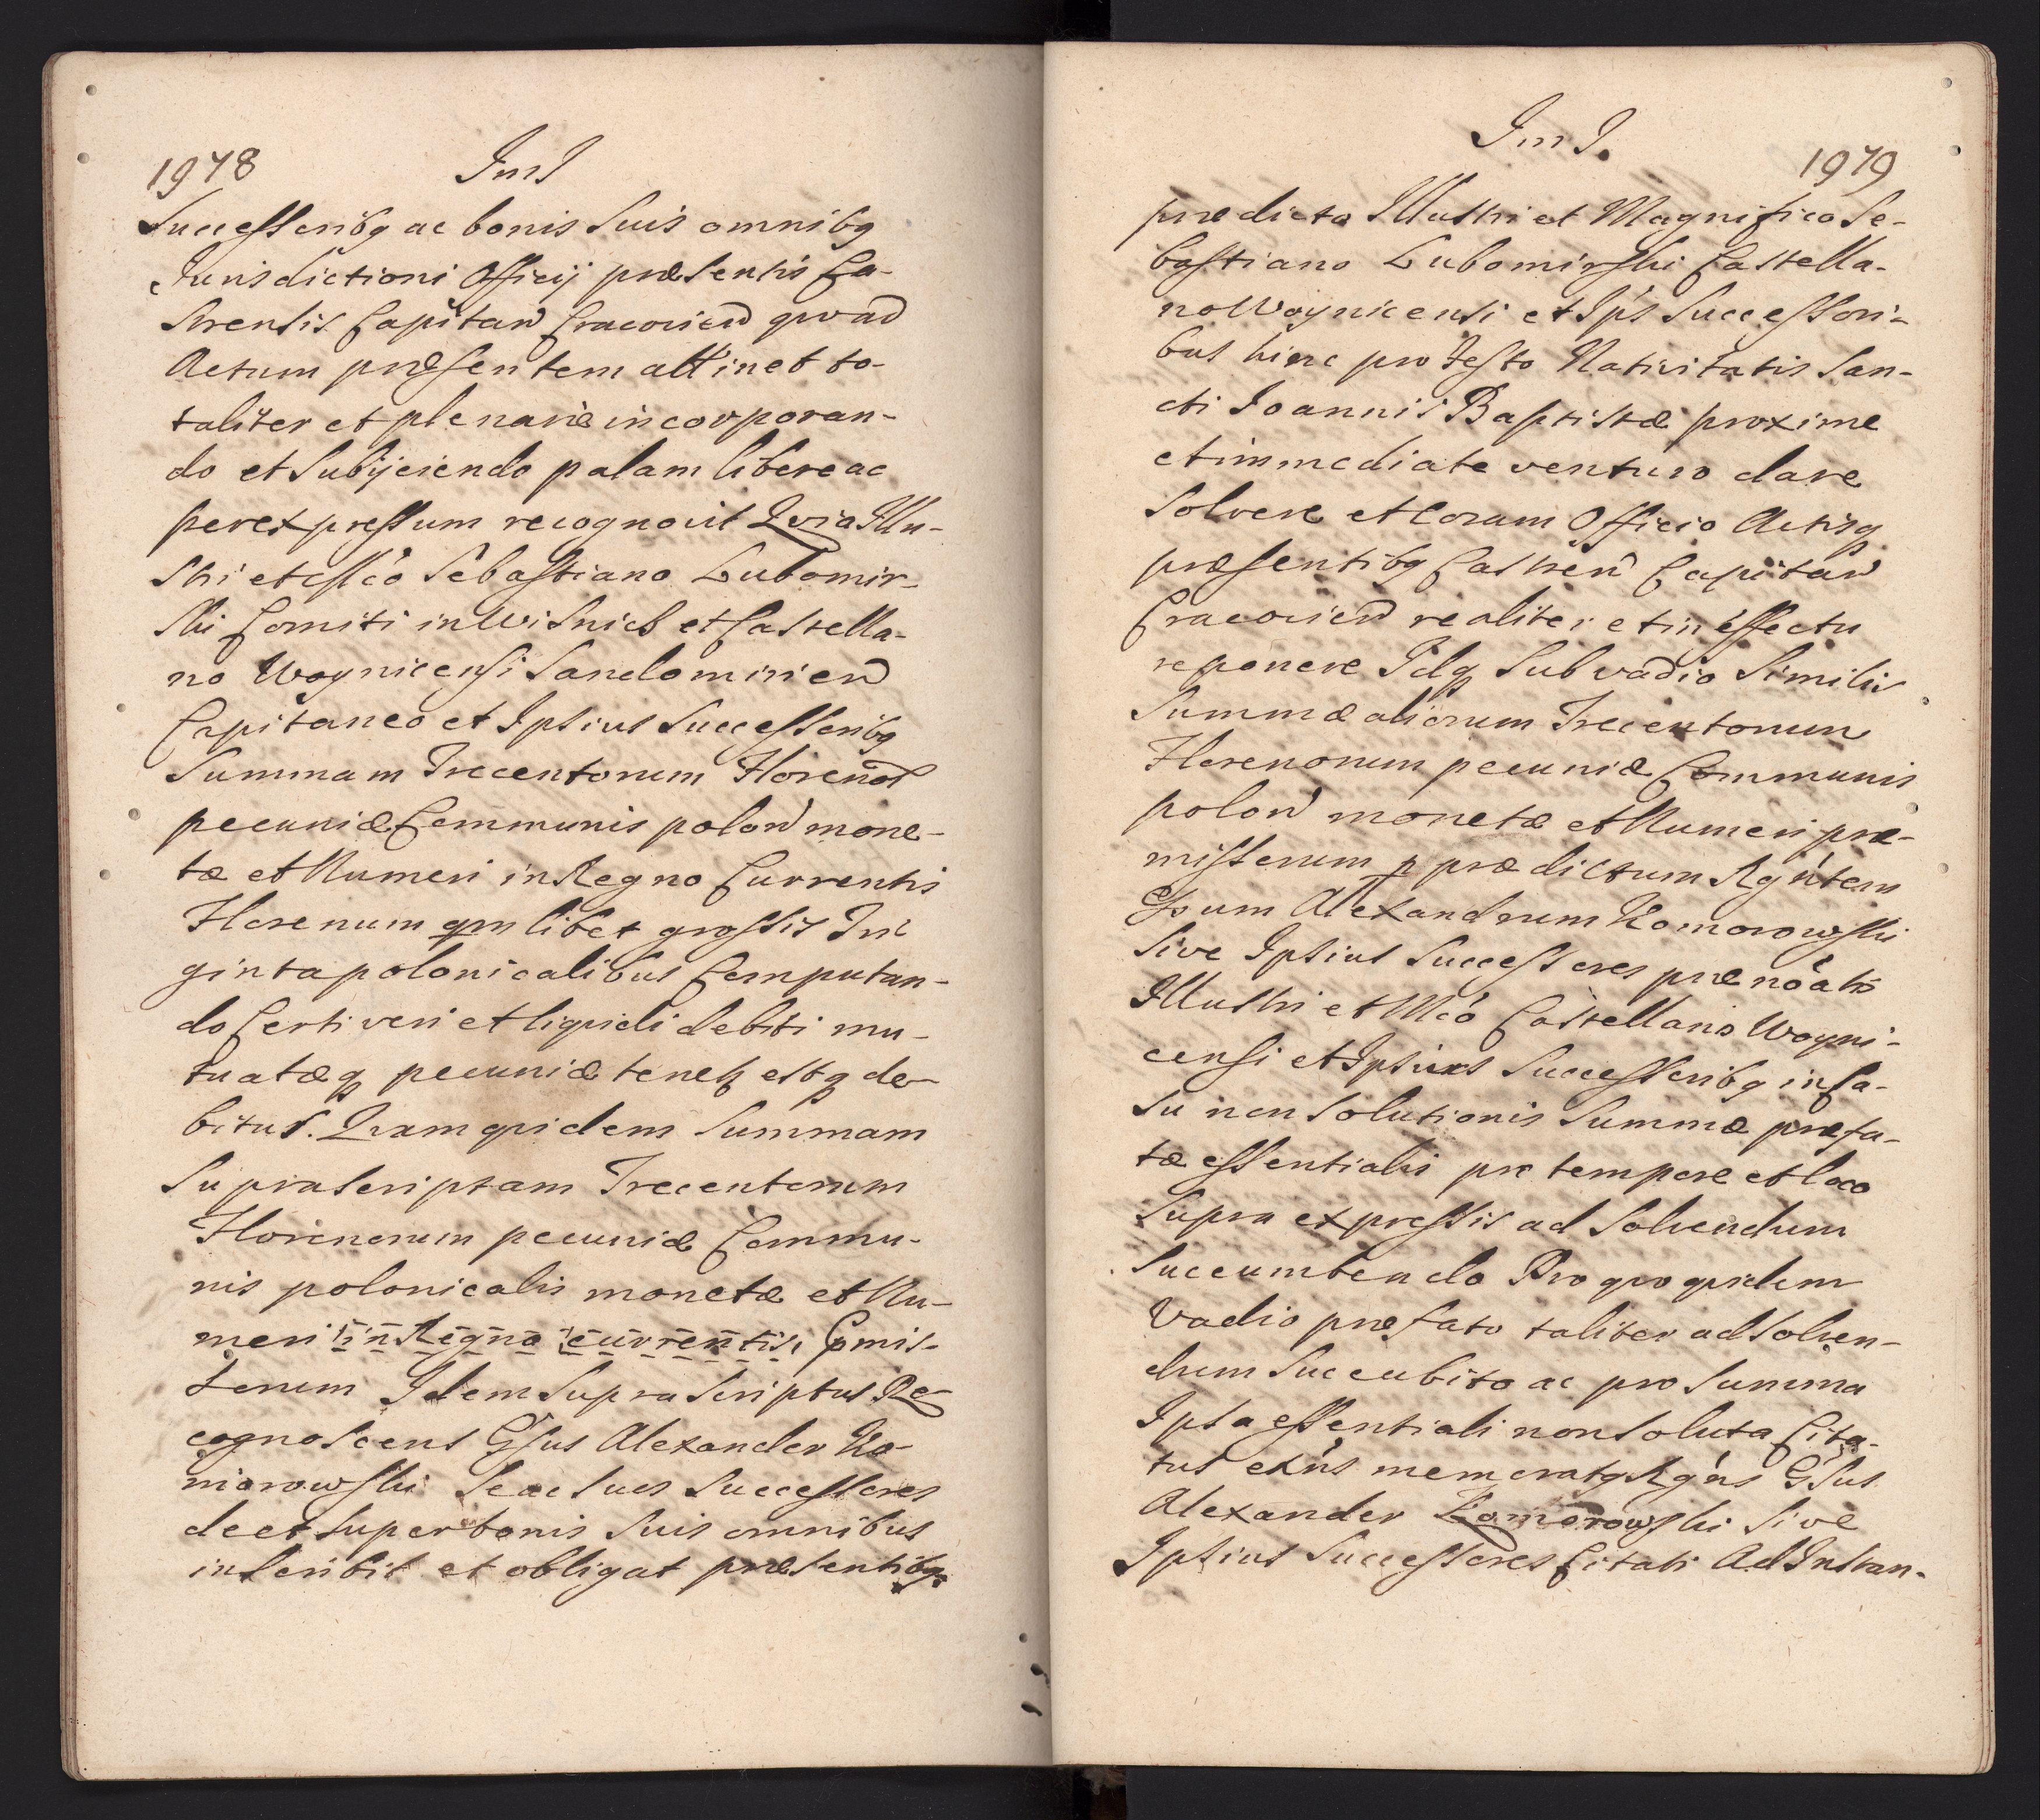 1978
Successoribq ac bonis Suis omnibq
Jurisdictioni Officij præsentis Ca-
strensis Capitan Cracovien qvad
Actum præsentem attinet to-
taliter et plenariæ incorporan-
do et Subijciendo palam libere ac
per expressum recognovit Qvia Illu-
stri et Mco Sebastiano Lubomir-
ski Comiti in Wisnicz et Castella-
no Woynicensi Sandomirien
Capitaneo et Ipsius Successoribq
Summam Trecentorum Florenor
pecuniæ Communis polon mone-
tæ et Numeri in Regno Currentis
Florenum qvmlibet grossis Tri
ginta polonicalibus Computan-
do Certi veri et liqvidi debiti mu-
tuatæq pecuniæ tenetz estq de-
bitus. Qvam qvidem Summam
Supra Scriptam Trecentorum
Florenorum pecuniæ Commu-
nis polonicalis monetæ et Nu-
meri in Regno currentis pmis-
sorum Idem Supra Scriptus Re-
cognoscens Gsus Alexander Ko-
morowski Se ac Suos Successores
de et Super bonis Suis omnibus
inscribit et obligat præsentibq
1979
prædicto Illustri et Magnifico Se-
bastiano Lubomirski Castella-
no Woynicensi et Ips Successori-
bus hinc pro Festo Nativitatis San-
cti Joannis Baptistæ proxime
et immediate venturo dare
Solvere et Coram Officio Actisq
præsentibq Castren Capitan
Cracovien realiter et in effectu
reponere Idq Sub vadio Similis
Summæ aliorum Trecentorum
Florenorum pecuniæ Communis
polon monetæ et Numeri præ-
missorum p prædictum Rgntem
Gsum Alexandrum Komorowski
Sive Ipsius Successores prænoato
Illustri et Mco Castellano Woyni-
censi et Ipsius Successoribq in Ca-
su non Solutionis Summæ præfa-
tæ essentialis pro tempore et loco
Supra expressis ad Solvendum
Succumbendo Pro qvo qvidem
Vadio præfato taliter ad Solven-
dum Succubito ac pro Summa
Ipsa essentiali non Soluta Cita-
tus extns memoratq Rgns Gsus
Alexander Komorowski Sive
Ipsius Successores Citati Ad Instan-